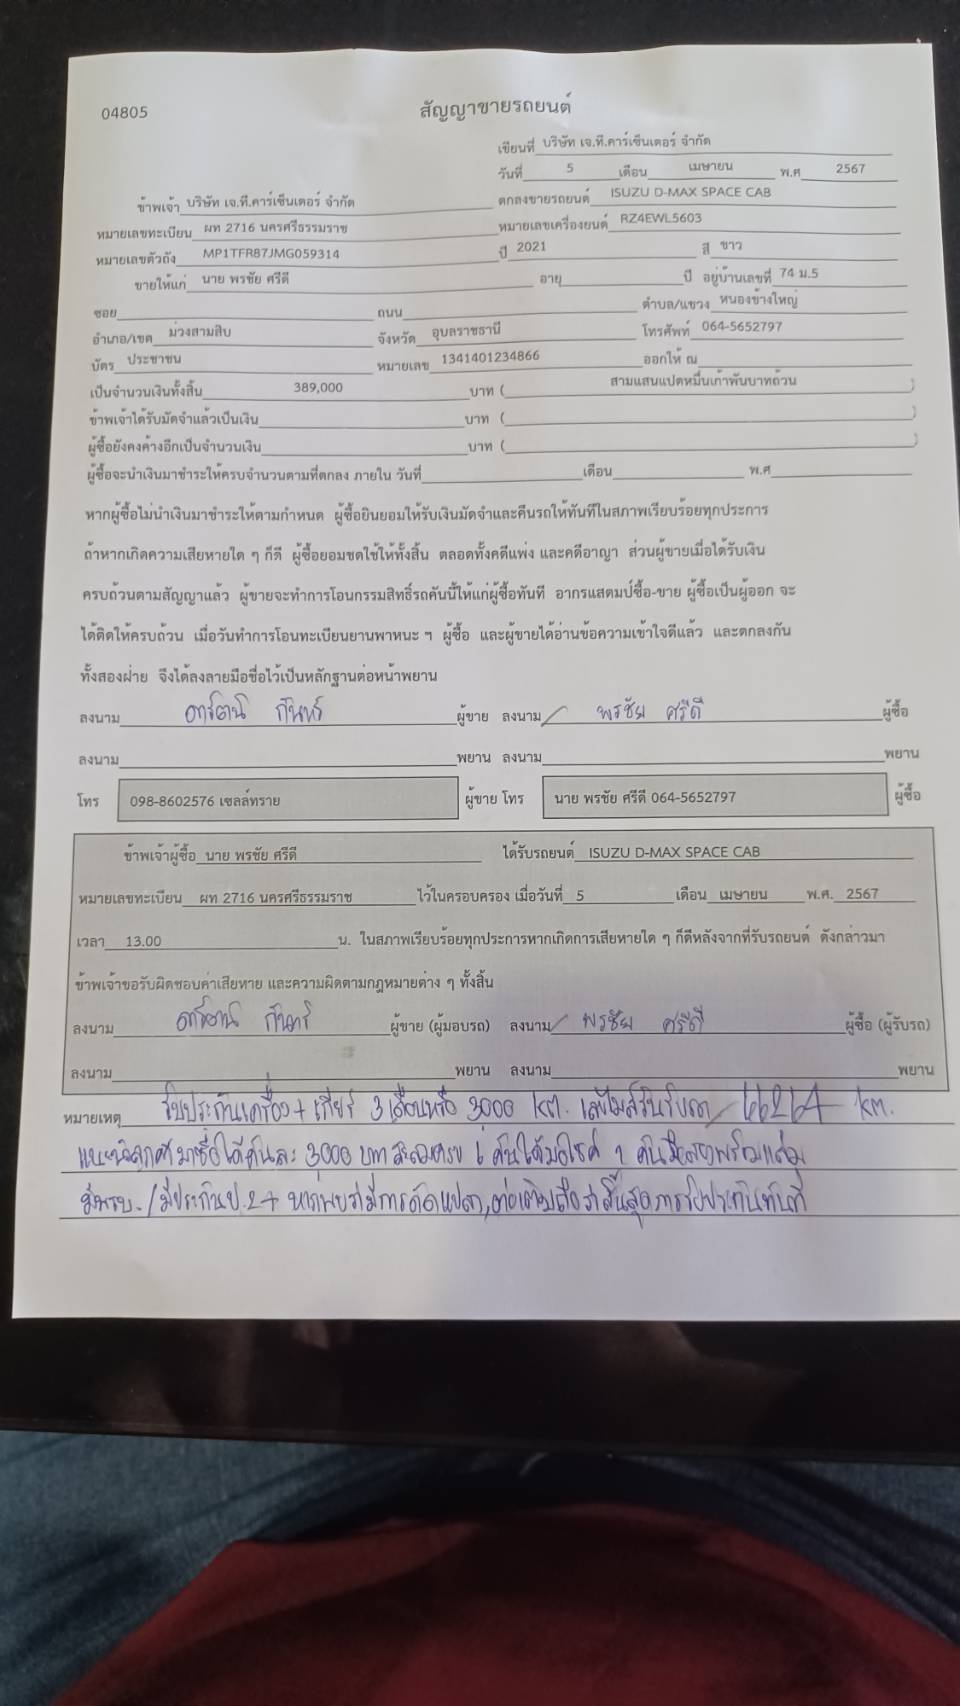 04805
สัญญาขายรถยนต์
เขียนที่ บริษัท เจ.ที.คาร์เซ็นเตอร์ จำกัด
วันที่ 5 เดือน เมษายน พ.ศ 2567
ข้าพเจ้า บริษัท เจ.ที.คาร์เซ็นเตอร์ จำกัด ตกลงขายรถยนต์ ISUZU D-MAX SPACE CAB
หมายเลขทะเบียน ผท 2716 นครศรีธรรมราช หมายเลขเครื่องยนต์ RZ4EWL5603
หมายเลขตัวถัง MP1TFR87JMG059314 ปี 2021 สี ขาว
ขายให้แก่ นาย พรชัย ศรีดี อายุ ปี อยู่บ้านเลขที่ 74 ม.5
ซอย ถนน ตำบล/แขวง หนองช้างใหญ่
อำเภอ/เขต ม่วงสามสิบ จังหวัด อุบลราชธานี โทรศัพท์ 064-5652797
บัตร ประชาชน หมายเลข 1341401234866 ออกให้ ณ
เป็นจำนวนเงินทั้งสิ้น 389,000 บาท ( สามแสนแปดหมื่นเก้าพันบาทถ้วน )
ข้าพเจ้าได้รับมัดจำแล้วเป็นเงิน บาท ( )
ผู้ซื้อยังคงค้างอีกเป็นจำนวนเงิน บาท ( )
ผู้ซื้อจะนำเงินมาชำระให้ครบจำนวนตามที่ตกลง ภายใน วันที่ เดือน พ.ศ
หากผู้ซื้อไม่นำเงินมาชำระให้ตามกำหนด ผู้ซื้อยินยอมให้รับเงินมัดจำและคืนรถให้ทันทีในสภาพเรียบร้อยทุกประการ
ถ้าหากเกิดความเสียหายใด ๆ ก็ดี ผู้ซื้อยอมชดใช้ให้ทั้งสิ้น ตลอดทั้งคดีแพ่ง และคดีอาญา ส่วนผู้ขายเมื่อได้รับเงิน
ครบถ้วนตามสัญญาแล้ว ผู้ขายจะทำการโอนกรรมสิทธิ์รถคันนี้ให้แก่ผู้ซื้อทันที อากรแสตมป์ซื้อ-ขาย ผู้ซื้อเป็นผู้ออก จะ
ได้ติดให้ครบถ้วน เมื่อวันทำการโอนทะเบียนยานพาหนะ ฯ ผู้ซื้อ และผู้ขายได้อ่านข้อความเข้าใจดีแล้ว และตกลงกัน
ทั้งสองฝ่าย จึงได้ลงลายมือชื่อไว้เป็นหลักฐานต่อหน้าพยาน
ลงนาม ผู้ขาย ลงนาม พรชัย ศรีดี ผู้ซื้อ
ลงนาม พยาน ลงนาม พยาน
โทร 098-8602576 เซลล์ทราย ผู้ขาย โทร นาย พรชัย ศรีดี 064-5652797 ผู้ซื้อ
ข้าพเจ้าผู้ซื้อ นาย พรชัย ศรีดี ได้รับรถยนต์ ISUZU D-MAX SPACE CAB
หมายเลขทะเบียน ผท 2716 นครศรีธรรมราช ไว้ในครอบครอง เมื่อวันที่ 5 เดือน เมษายน พ.ศ. 2567
เวลา 13.00 น. ในสภาพเรียบร้อยทุกประการหากเกิดการเสียหายใด ๆ ก็ดีหลังจากที่รับรถยนต์ ดังกล่าวมา
ข้าพเจ้าขอรับผิดชอบค่าเสียหาย และความผิดตามกฎหมายต่าง ๆ ทั้งสิ้น
ลงนาม ผู้ขาย (ผู้มอบรถ) ลงนาม พรชัย ศรีดี ผู้ซื้อ (ผู้รับรถ)
ลงนาม พยาน ลงนาม พยาน
หมายเหตุ รับประกันเครื่อง + เกียร์ 3 เดือนหรือ 3000 KM. เลขไมล์วันรับรถ 66264 KM.
แนะนำลูกค้ามาซื้อได้คันละ 3000 บาท สะสมครบ 6 คันได้มอไซค์ 1 คันมือสองพร้อมเล่ม
มีพรบ. / มีประกันป.2+ หากพบว่ามีการดัดแปลง,ต่อเติมถือว่าสิ้นสุดการรับประกันทันที